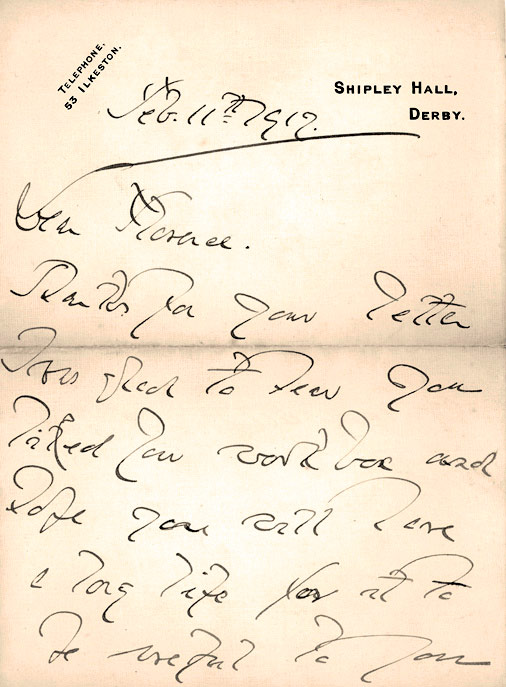 TELEPHONE.
53 ILKESTON.
SHIPLEY HALL,
DERBY.
Feb. 11th 1917.
Dear Florence.
Thanks for your letter
I was glad to hear you
liked your work box and
hope you will have
a long life for it to
be useful to you